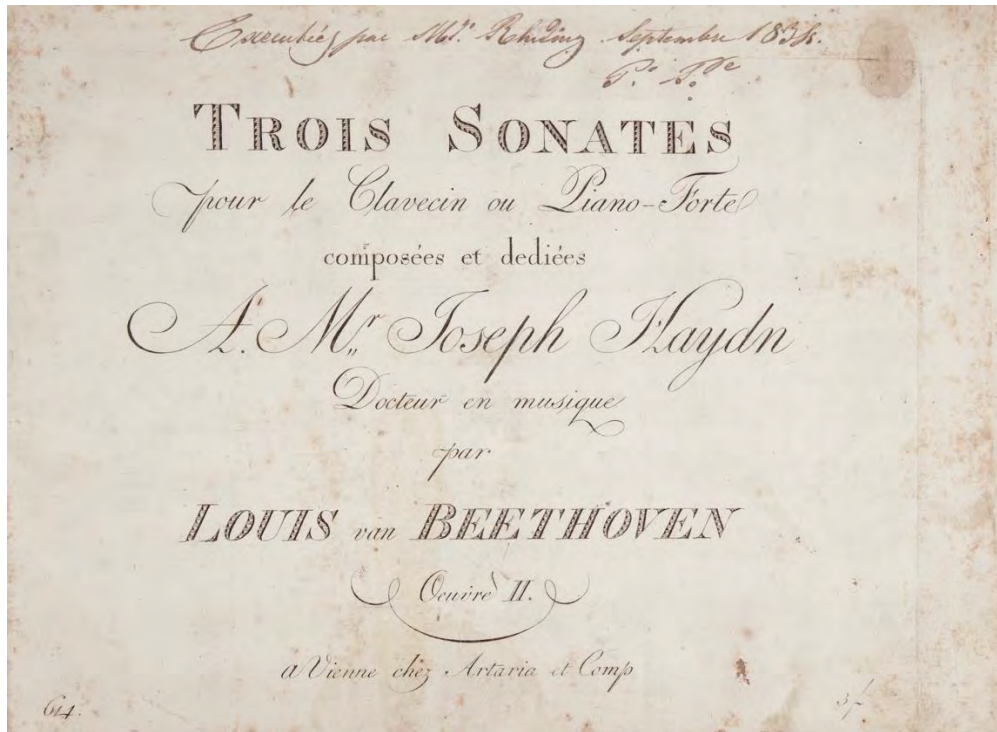 Executées par Md. Septembre 183
TROIS SONATES
pour le Clavecin ou Piano-Forte
composées et dediées
A. Mr. Joseph Haydn
Docteur en musique
par
LOUIS van BEETHOVEN
Oeuvre II.
a Vienne chez Artaria et Comp
614.
3f